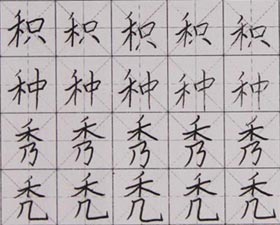 积积积积积
种种种种种
秀秀秀秀秀
秃秃秃秃秃